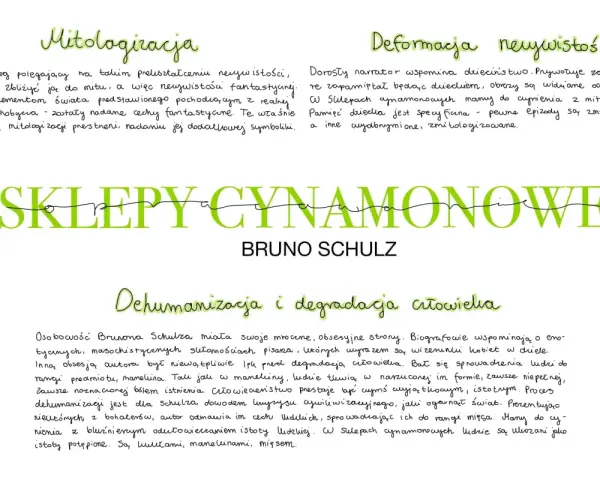 Mitologizacja
polegający na takim przekształceniu rzeczywistości,
zbliżyć ją do mitu, a więc rzeczywistości fantastycznej.
świata przedstawionego pochodzącym z realnej
zostały nadane cechy fantastyczne. Te właśnie
mitologizacji przestrzeni, nadaniu jej dodatkowej symboliki.
Deformacja rzeczywistoś
Dorosły narrator wspomina dzieciństwo. Przywołuje
zapamiętał będąc dzieckiem, obrazy są widziane
W Sklepach cynamonowych mamy do czynienia z mit
Pamięć dziecka jest specyficzna - pewne epizody są
a inne wyolbrzymione, zmitologizowane.
SKLEPY CYNAMONOWE
opracowanie
BRUNO SCHULZ
Dehumanizacja i degradacja człowieka
Osobowość Brunona Schulza miała swoje mroczne, obsesyjne strony. Biografowie wspominają o ero-
tycznych, masochistycznych skłonnościach pisarza, których wyrazem są wizerunki kobiet w dziele.
Inną obsesją autora był niewątpliwie lęk przed degradacją człowieka. Bał się sprowadzenia ludzi do
rangi przedmiotu, manekina. Tak jak w manekiny, ludzie tkwią w narzuconej im formie, zawsze niepełnej,
zawsze naznaczonej bólem istnienia. Człowieczeństwo przestaje być czymś wyjątkowym, istotnym. Proces
dehumanizacji jest dla Schulza dowodem kryzysu cywilizacyjnego, jaki ogarnął świat. Prezentując
niektórych z bohaterów, autor odmawia im cech ludzkich, sprowadzając ich do rangi mięsa. Mamy do czy-
nienia z bluźnierczym odczłowieczeniem istoty ludzkiej. W Sklepach cynamonowych ludzie są ukazani jako
istoty potępione. Są kukłami, manekinami, mięsem.